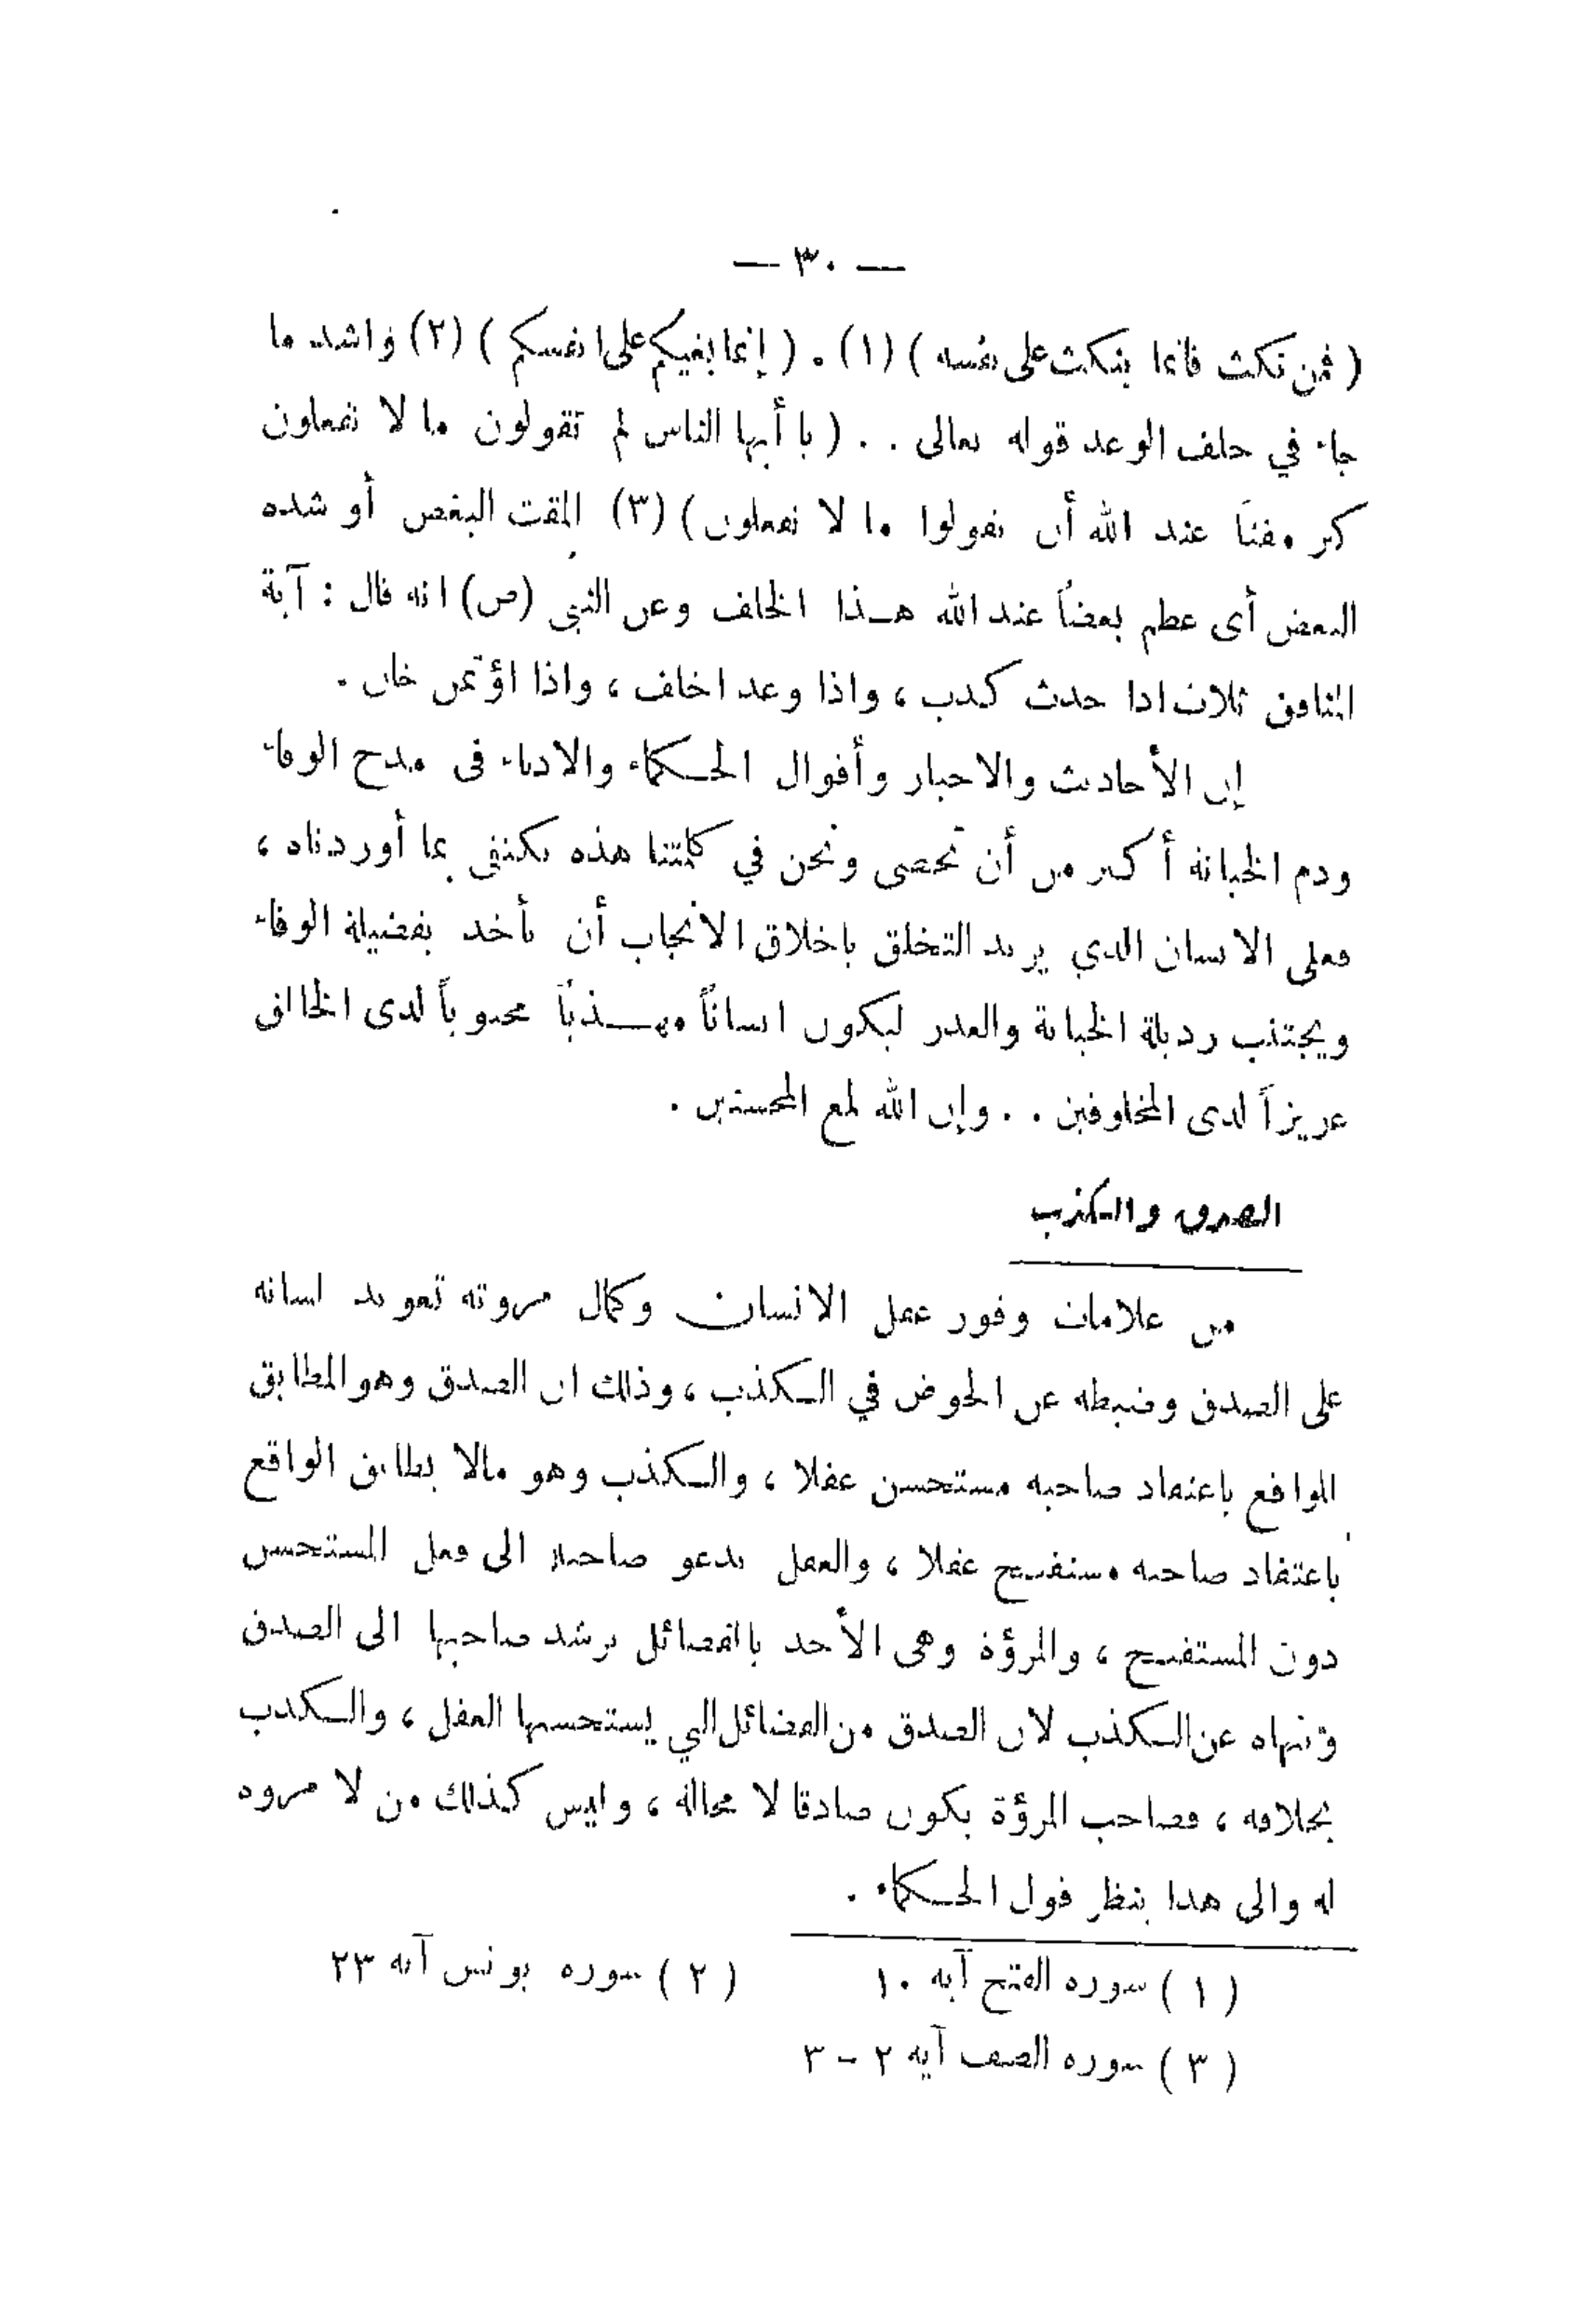 — ٣٠ —
( فمن نكث فانما ينكث على نفسه ) (١) . ( إنما بغيكم على انفسكم ) (٢) واشد ما
جاء في خلف الوعد قوله تعالى . . ( يا أيها الناس لم تقولون ما لا تفعلون
كبر مقتاً عند الله أن تقولوا ما لا تفعلون ) (٣) المقت البغض أو شده
البغض أى عظم بغضاً عند الله هـذا الخلف وعن النبي (ص) انه قال : آية
المنافق ثلاث اذا حدث كذب ، واذا وعد اخلف ، واذا اؤتمن خان .
إن الأحاديث والاخبار وأقوال الحـكماء والادباء فى مدح الوفاء
وذم الخيانة أكثر من أن تحصى ونحن في كلمتنا هذه نكتفى بما أوردناه ،
فعلى الانسان الذي يريد التخلق باخلاق الانجاب أن يأخذ بفضيلة الوفاء
ويجتنب رذيلة الخيانة والغدر ليكون انساناً مهـــذباً محبوباً لدى الخالق
عزيزاً لدى المخلوقين . . وإن الله لمع المحسنين .
الصدق والـكذب
من علامات وفور عقل الانسان وكمال مروته تعويد لسانه
على الصدق وضبطه عن الخوض في الـكذب ، وذلك ان الصدق وهو المطابق
للواقع باعتقاد صاحبه مستحسن عقلا ، والـكذب وهو مالا يطابق الواقع
باعتقاد صاحبه مستقبـح عقلا ، والعقل يدعو صاحبه الى فعل المستحسن
دون المستقبـح ، والمرؤة وهى الأخذ بالفضائل ترشد صاحبها الى الصدق
وتنهاه عن الـكذب لان الصدق من الفضائل التي يستحسنها العقل ، والـكذب
بخلافه ، فصاحب المرؤة يكون صادقا لا محالة ، وليس كذلك من لا مروه
له والى هذا ينظر قول الحـكماء .
( ١ ) سوره الفتح آيه ١٠ ( ٢ ) سوره يونس آيه ٢٣
( ٣ ) سوره الصف آيه ٢ - ٣